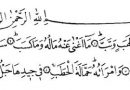 اللهِ الرَّحْمٰنِ
لَهَبٍ وَّتَبَّ ۝ مَآ اَغْنٰى عَنْهُ مَالُهٗ وَمَا كَسَبَ ۝
وَّامْرَاَتُهٗ حَمَّالَةَ الْحَطَبِ ۝ فِيْ جِيْدِهَا حَبْلٌ